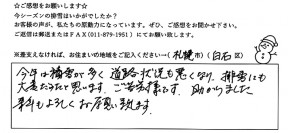 ☆ご感想をお願いします☆
今シーズンの排雪はいかがでしたか？
お客様の声が、私たちの原動力になっています。ぜひ、ご感想をお聞かせ下さい。
ご返信は郵送またはFAX(011-879-1951)にてお願い致します。
※差支えなければ、お住まいの地域をご記入ください→(札幌市)(白石区)
今年は積雪が多く道路状況も悪くなり、排雪にも
大変だったと思います。ご苦労様です。助かりました
来年もよろしくお願い致します。